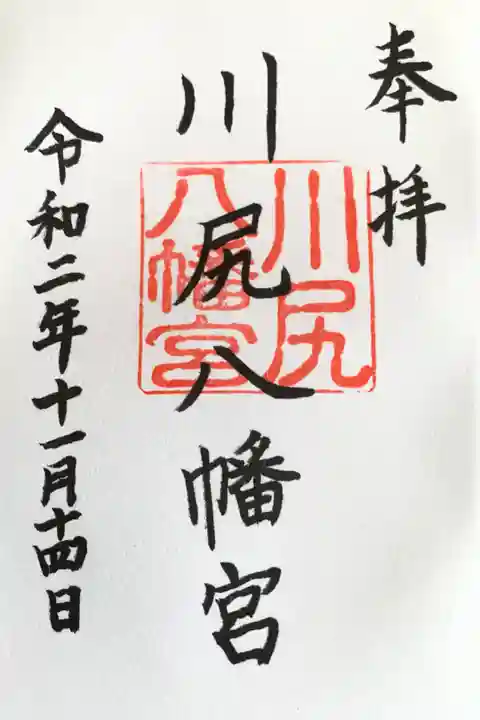 奉拝
川尻八幡宮
川尻
八幡宮
令和二年十一月十四日